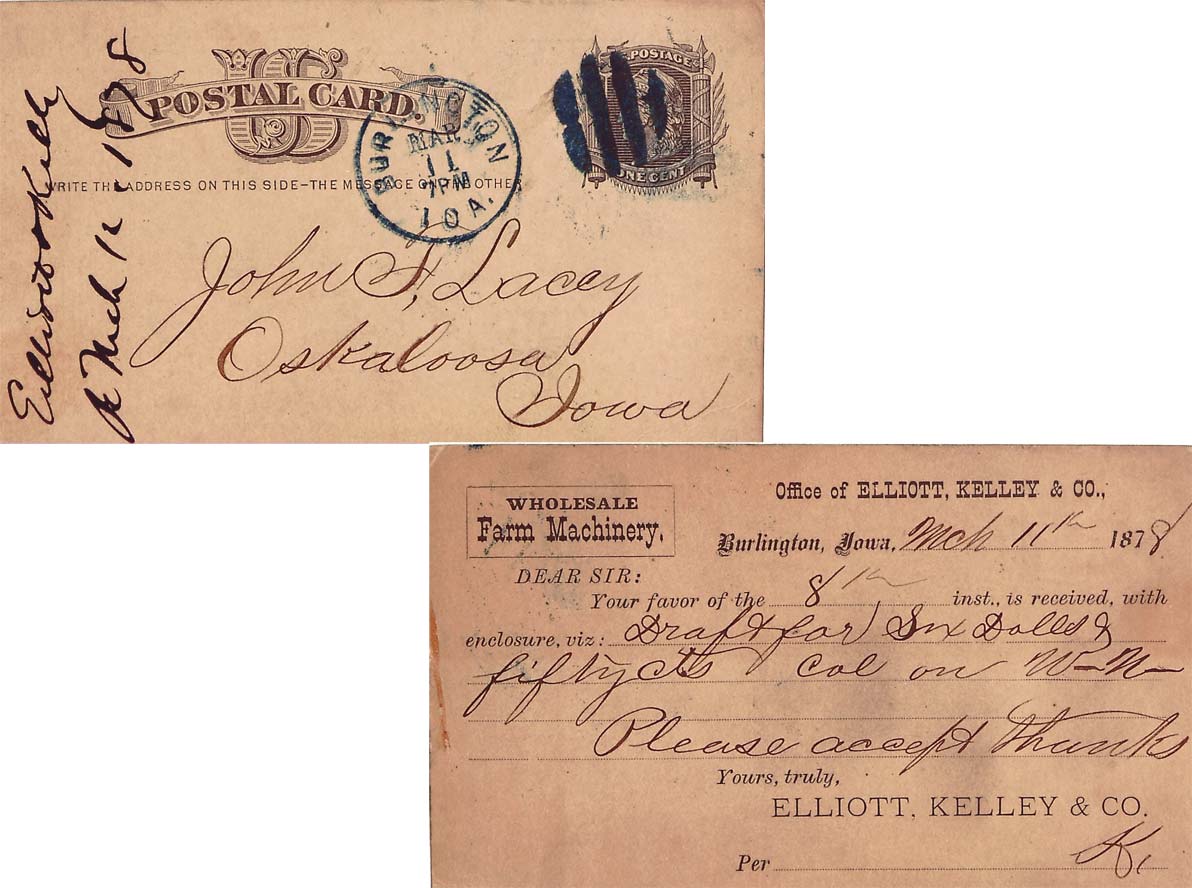 US
POSTAL CARD.
WRITE THE ADDRESS ON THIS SIDE–THE MESSAGE ON THE OTHER
BURLINGTON
MAR
11
7PM
IOA.
POSTAGE
ONE CENT
John F. Lacey
Oskaloosa
Iowa
Elliott Kelly
Mch 12 1878
WHOLESALE
Farm Machinery.
Office of ELLIOTT, KELLEY & CO.,
Burlington, Iowa, Mch 11th 1878
DEAR SIR:
Your favor of the 8th inst., is received, with
enclosure, viz: Draft for Six Dolls &
fifty cts col on
Please accept thanks
Yours, truly,
ELLIOTT, KELLEY & CO.
Per K.